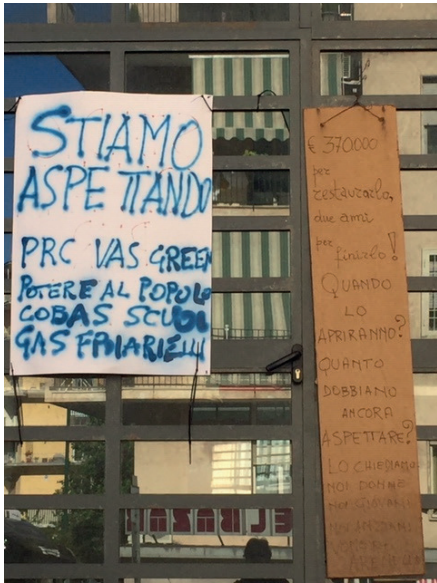 STIAMO
ASPETTANDO
PRC VAS GREEN
POTERE AL POPOLO
COBAS SCUOL
GAS FRIARIELLI
€ 370.000
per
restaurarlo,
due anni
per
finirlo!
QUANDO
LO
APRIRANNO?
QUANTO
DOBBIAMO
ANCORA
ASPETTARE?
LO CHIEDIAMO
NOI DONNE
NOI GIOVANI
NOI ANZIANI
EL BAZAR